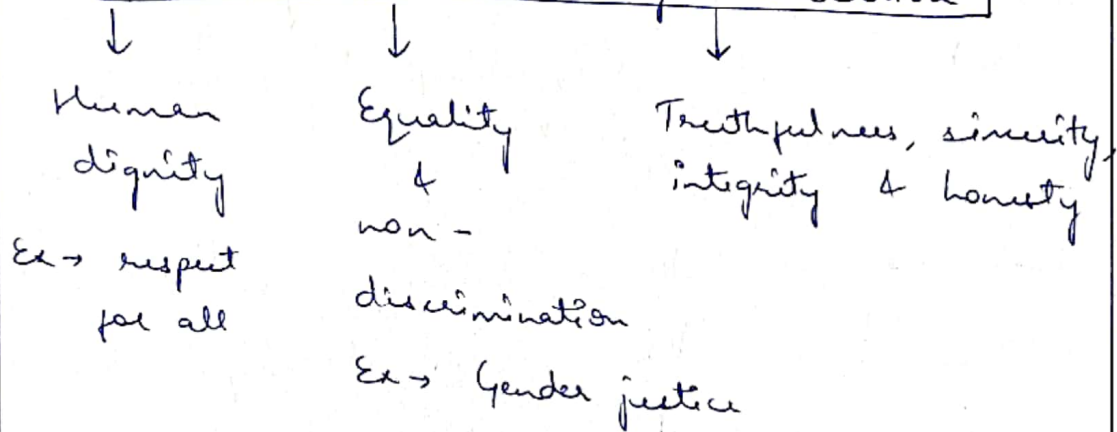 Human
dignity
Ex → respect
for all
Equality
&
non -
discrimination
Ex → Gender justice
Truthfulness, sincerity,
integrity & honesty